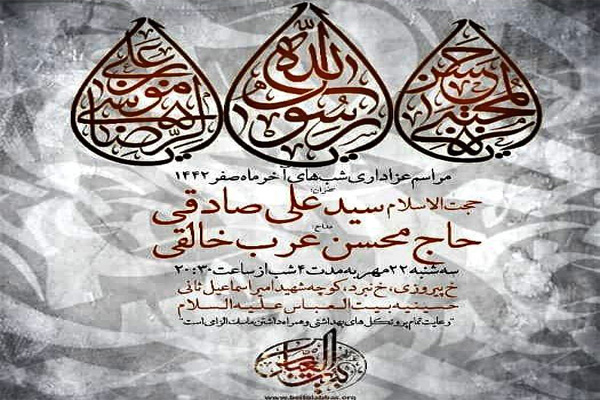 حسن المجتبی
رسول الله
علی بن موسی الرضا
مراسم عزاداری شب‌های آخر ماه صفر ۱۴۴۲
سخنران:
حجت الاسلام سید علی صادقی
مداح:
حاج محسن عرب خالقی
سه شنبه ۲۲ مهر به مدت ۴ شب از ساعت ۲۰:۳۰
خ پیروزی، خ نبرد، کوچه شهید امیر اسماعیل ثانی
حسینیه بیت العباس علیه السلام
"رعایت تمام پروتکل های بهداشتی و همراه داشتن ماسک الزامی است"
بیت العباس
www.beitolabbas.org